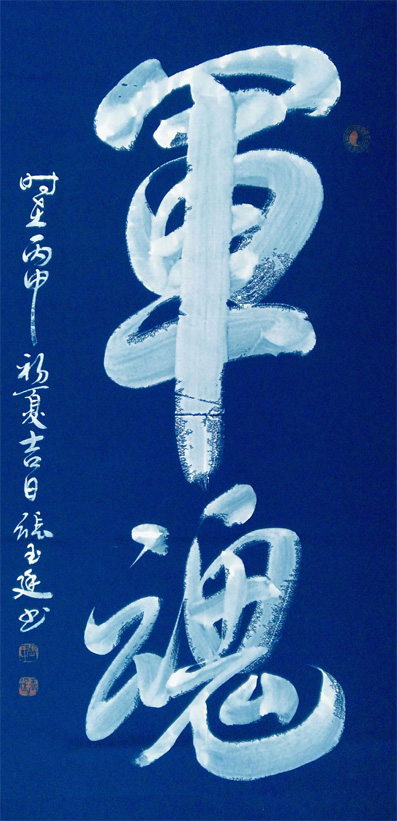 軍魂
时在丙申初夏吉日張玉廷书